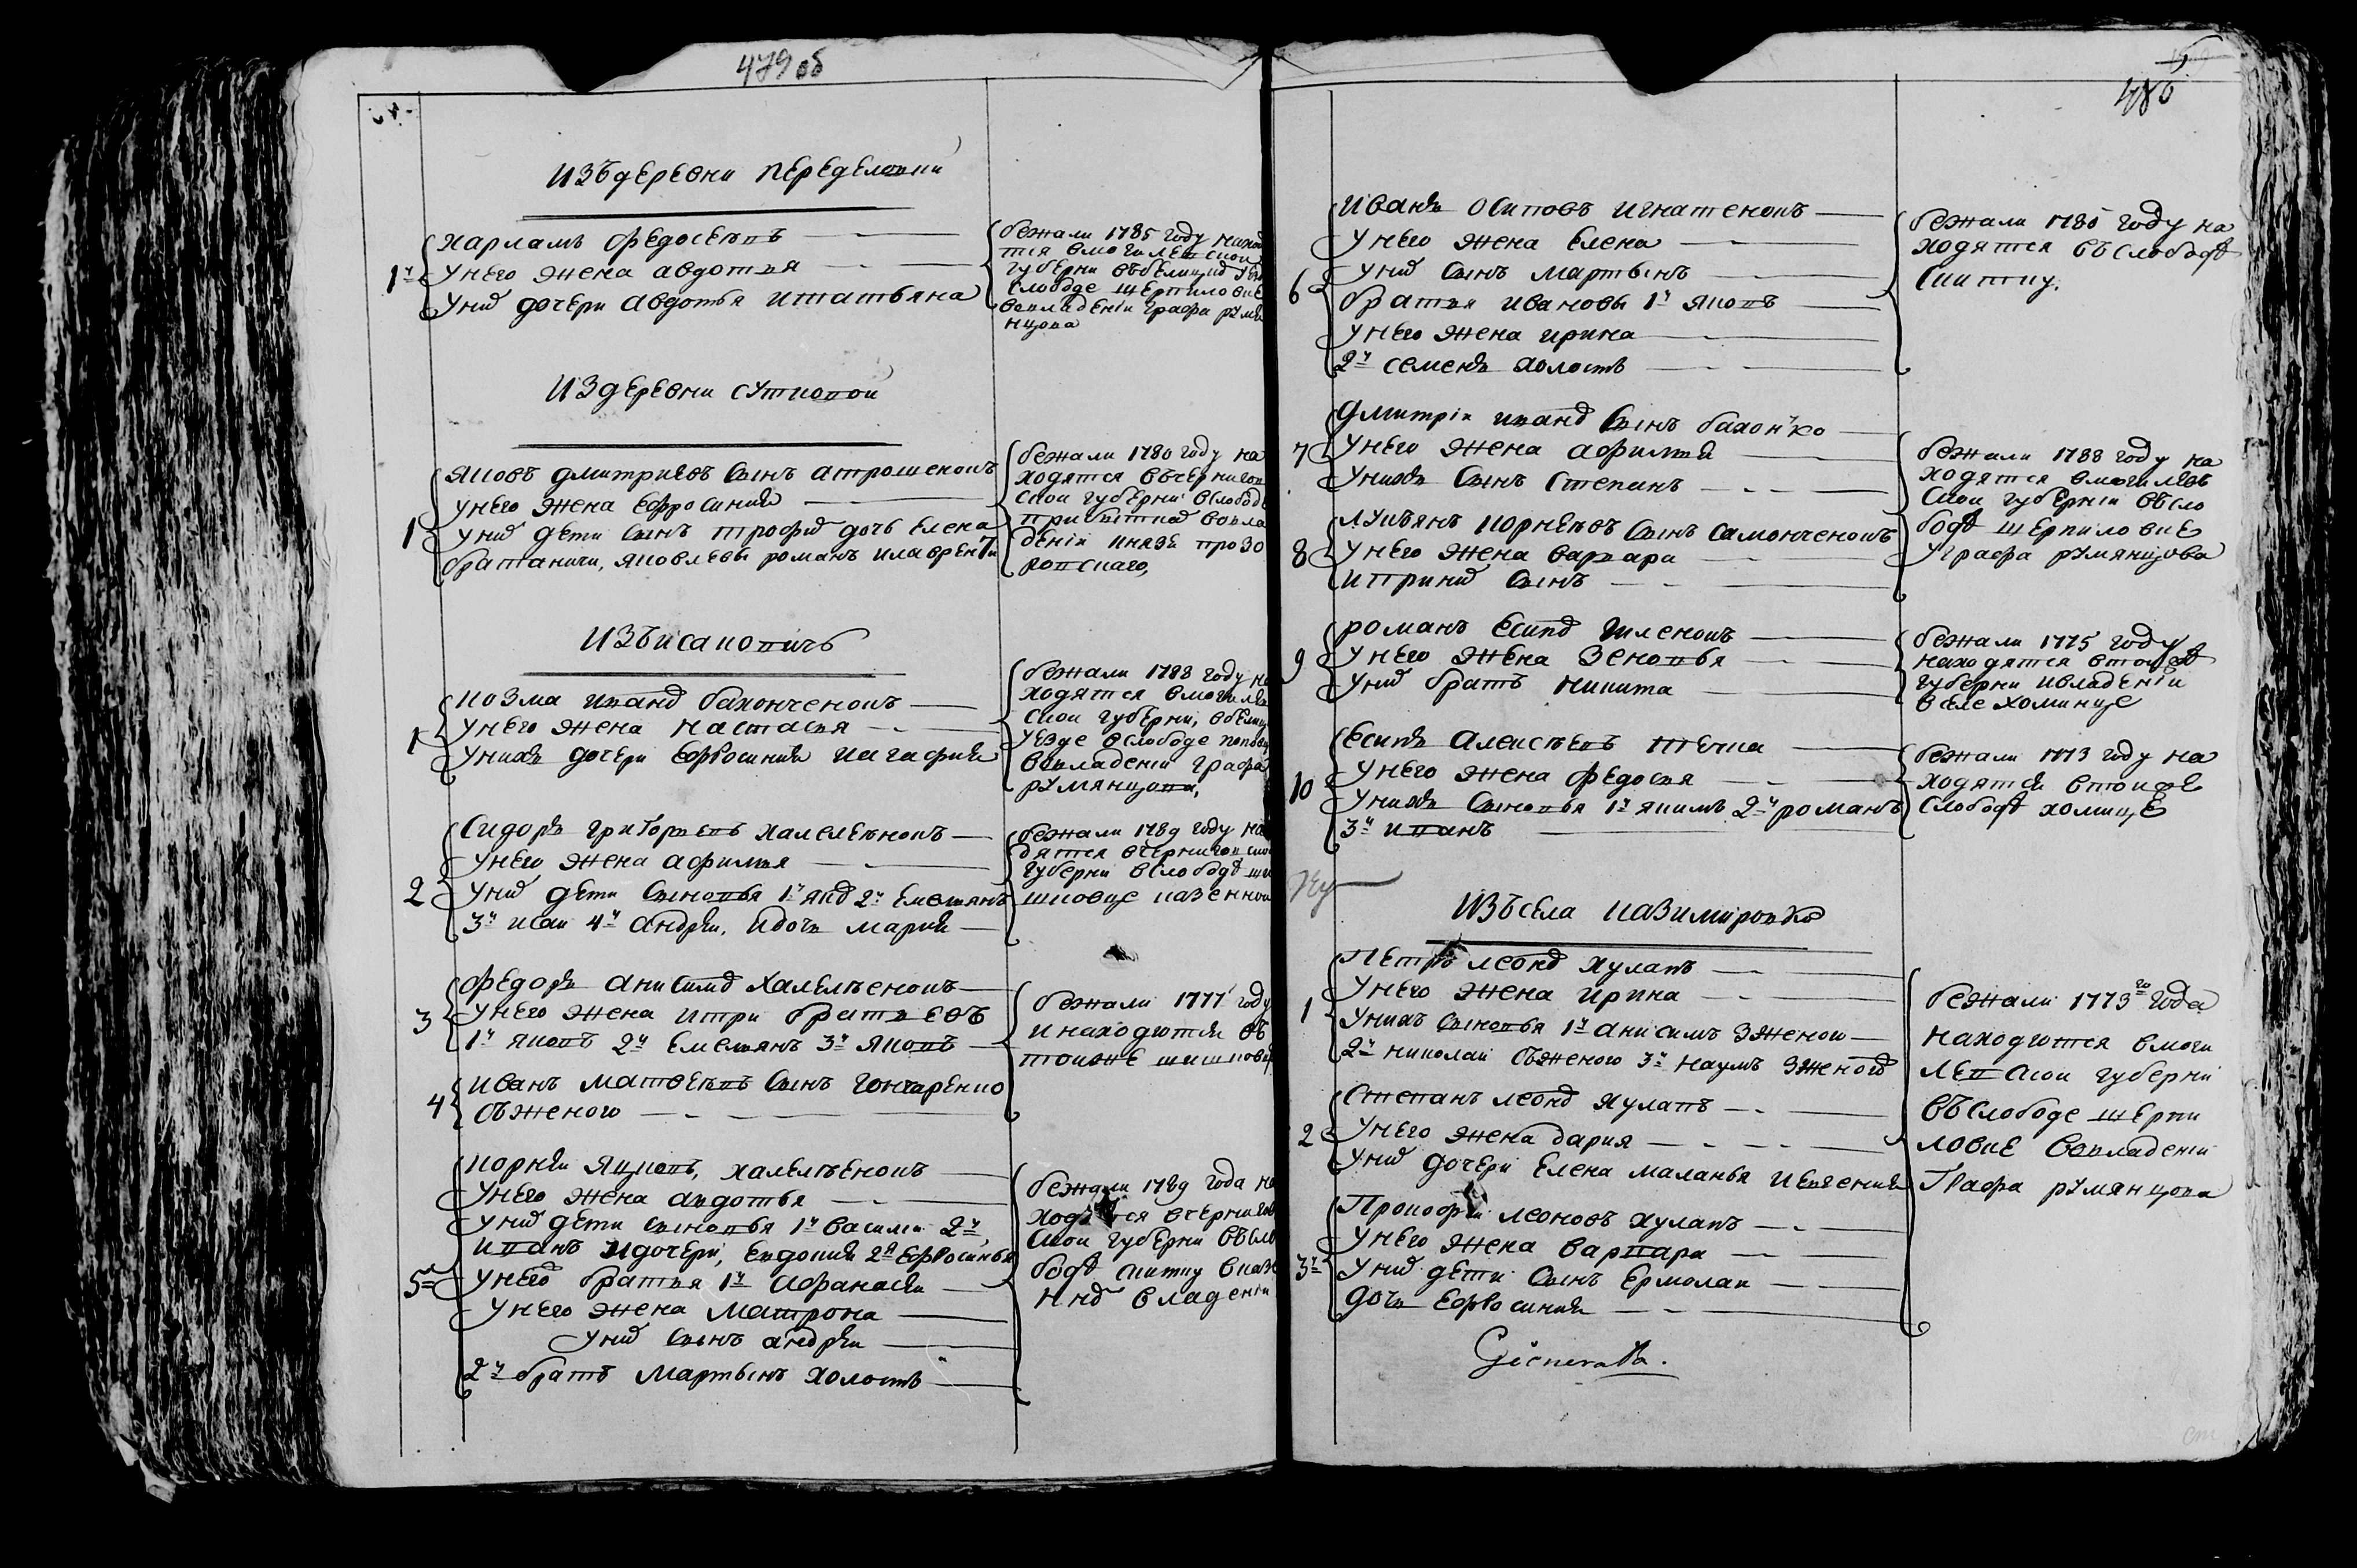 479 об
изъ деревни переделовки
1й
Харламъ Федосеевъ
у него жена авдотья
у ниⷯ дочери авдотья и татьяна
бежали 1785 году наход
тся в могилевской
губерни въ белицкоⷨ уез
слободе щерпиловке
во владенiи графа румя
нцова
из деревни сутковой
1
Яковъ дмитриевъ сынъ атрошенокъ
у него жена ефросиния
у ниⷯ дети сынъ трофиⷨ дочь елена
братаничи, яковлевы романъ и лаврентi
бежали 1780 году на
ходятся въ чернигов
ской губерни в слобод
прибыткаⷯ во вла
денiи князя прозо
ровскаго,
изъ исаковичъ
1
козма иваноⷡ бахонченокъ
у него жена настасья
у нихъ дочери ефросиния и агафия
бежали 1788 году на
ходятся в могилев
ской губерни, в белиц
уезде в слободе поповк
во владенiи графа
румянцова,
2
Сидоръ григорьевъ халелѣнокъ
у него жена афимья
у ниⷯ дети сыновья 1й 2й емельянъ
3й исаи 4й андреи, и дочь мария
бежали 1789 году нахо
дятся в чернигов ской
губерни в слободѣ ши
шковце казенной
3
Федоръ анисимоⷡ халелѣенокъ
у него жена и три братьевъ
1й яковъ 2й емельянъ 3й яковъ
бежали 1777 году
и находютъся въ
тои же шишковцⷷ
4
иванъ матвеевъ сынъ гончаренко
съ женою
5й
корнѣи яцковъ, халелѣенокъ
у него жена авдотья
у ниⷯ дети сыновья 1й василеи 2й
иванъ и дочери, евдокия 2я ефросинья
у него братья 1й афанасеи
у него жена матрона
у ниⷯ сынъ андрѣи
2й братъ мартынъ холостъ
бежали 1789 года на
ходятся в чернигов
ской губерни въ сло
бодѣ скитку в казе
нноⷨ владенiи
480
6
иванъ осиповъ игнатенокъ
у него жена елена
у ниⷯ сынъ мартынъ
братья ивановы 1й яковъ
у него жена ирина
2й семенъ холостъ
бежали 1780 году на
ходятся въ слободѣ
скитку.
7
дмитрiи иваноⷡ сынъ бахонько
у него жена афимья
у нихъ сынъ степанъ
8
лукьянъ корнеевъ сынъ самонченокъ
у него жена варвара
и при ниⷯ сынъ
бежали 1788 году на
ходятся в могилевъ
ской губернiи въ сло
бодѣ щерпиловке
у графа румянцова
9
романъ есипоⷡ шленокъ
у него жена зеновья
у ниⷯ братъ никита
бежали 1775 году
находятся в тои же
губерни и владенiи
в селе хоминце
10
есипъ алексѣевъ течка
у него жена федосья
у нихъ сыновья 1й якимъ 2й романъ
3й иванъ
бежали 1773 году на
ходятся в тои же
слободѣ хомице
изъ села казимировки
1
Петръ леоноⷡ хулапъ
у него жена ирина
у нихъ сыновья 1й анисимъ з женою
2й николаи съ женою 3й наумъ з женою
2
Степанъ леоноⷡ хулапъ
у него жена дария
у ниⷯ дочери елена маланья и евгения
3й
Прокофеи леоновъ хулапъ
у него жена варвара
у ниⷯ дети сынъ ермолаи
дочь ефросиния
бежали 1773го года
находются в моги
левской губернiи
въ слободе щерпи
ловке во владенiи
графа румянцова